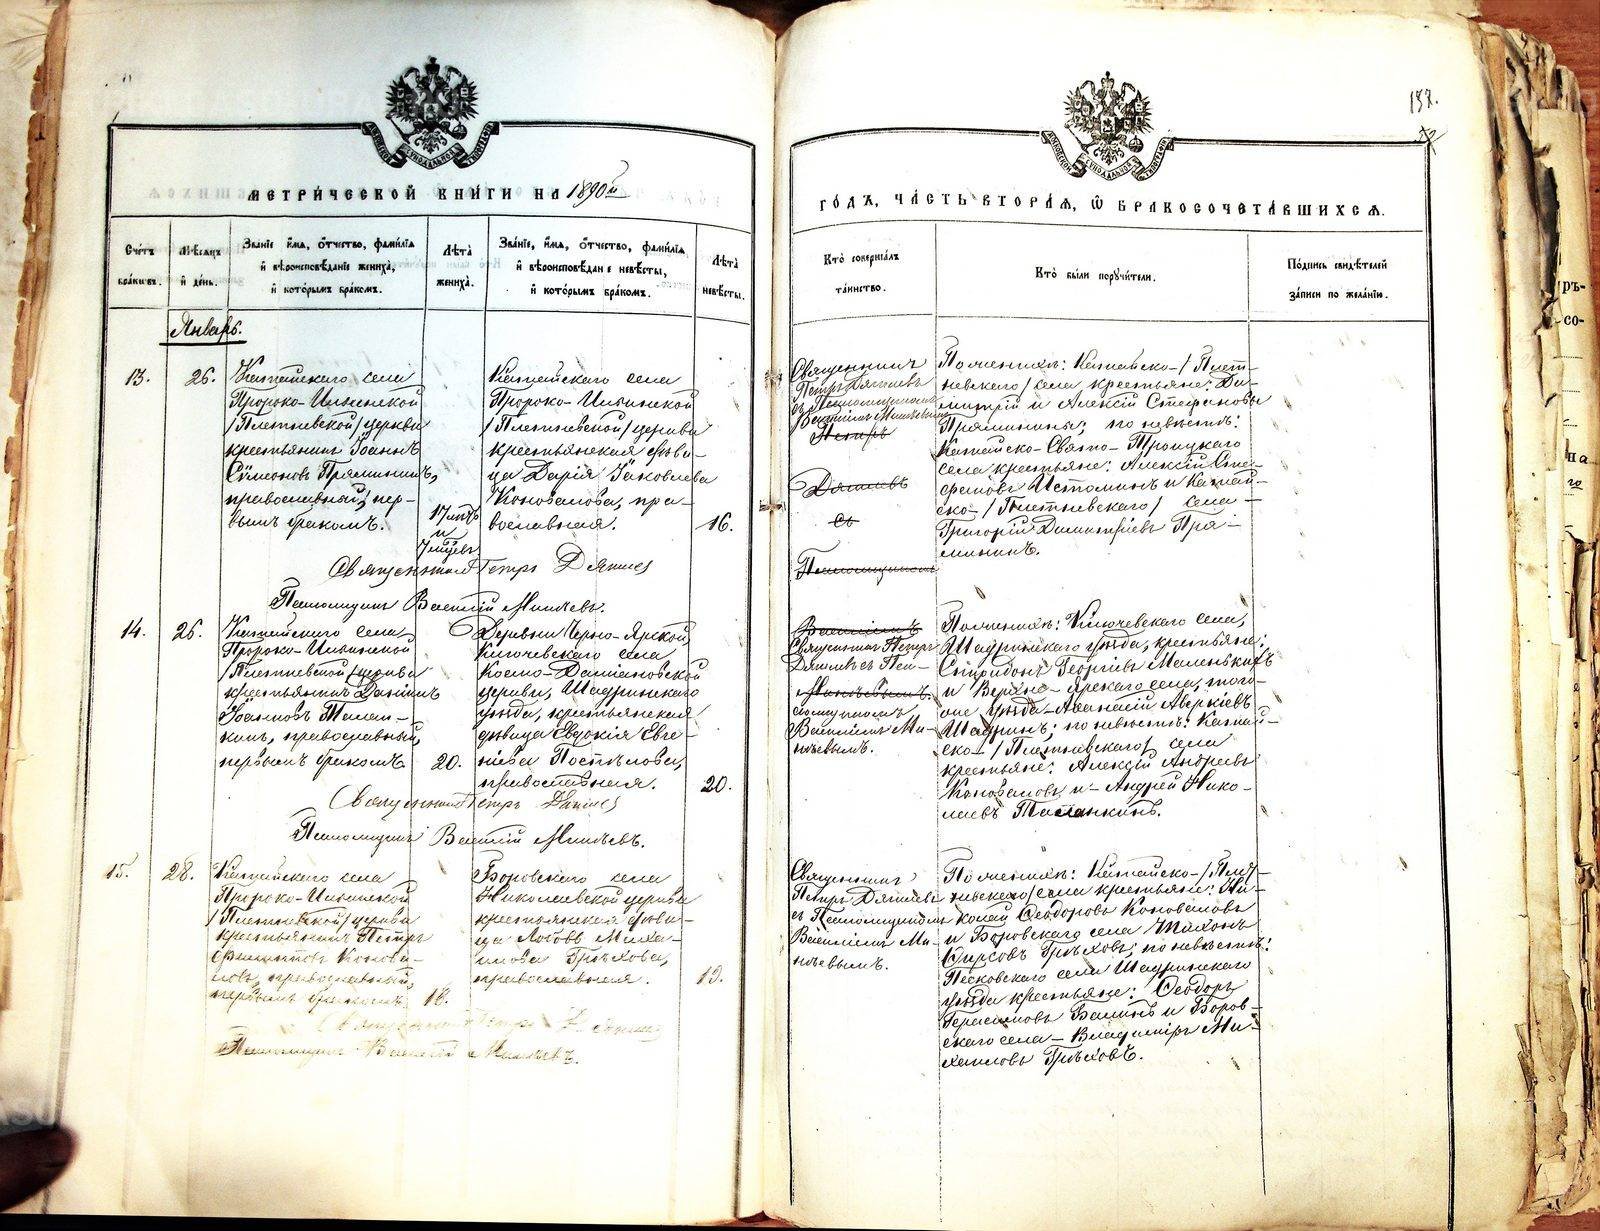 187.
МЕТРИ́ЧЕСКОЙ КНИ́ГИ НА 1890й
ГО́ДЪ, ЧА́СТЬ ВТОРА́Я, Ѡ БРАКОСОЧЕТА́ВШИХСЯ.
Сче́тъ бра́ковъ.
Мѣ́сяцъ и҆ де́нь.
Зва́нїе и҆́мя, ѻ҆́тчество, фамѝлїя
и҆ вѣроисповѣ́данїе жениха̀,
и҆ кото́рымъ бра́комъ.
Лѣ́та жениха̀.
Зва́нїе, и҆́мя, ѻ҆́тчество, фами́лїя
и҆ вѣроисповѣ́данїе невѣ́сты,
и҆ кото́рымъ бра́комъ.
Лѣ́та невѣ́сты.
Кто̀ соверша́лъ
та́инство.
Кто̀ бы́ли поручи́тели.
По́дпись свидѣ́телей
за́писи по жела́нїю.
Январь.
13.
26.
Катайскаго села
Пророко-Ильинской
/Плетневской/ церкви
крестьянинъ Іоаннъ
Сѵмеоновъ Прямининъ,
православный, пер-
вымъ бракомъ.
17 лѣтъ
и
7 мѣсяцевъ
Катайскаго села
Пророко-Ильинской
/Плетневской/ церкви
крестьянская дѣви-
ца Дарія Іаковлева
Коновалова, пра-
вославная.
16.
Священникъ
Петръ Дягилевъ
съ Псаломщикомъ
Василіемъ Минѣевымъ
Петръ
Дягилевъ
съ
Псаломщикомъ
По женихѣ: Катайско-/Плет-
невскаго/ села крестьяне: Ди-
митрій и Алексій Стефановы
Пряминины; по невѣстѣ:
Катайско-Свято-Троицкаго
села крестьяне: Алексій Сте-
фановъ Истоминъ и Катай-
ско-/Плетневскаго/ села
Григорій Димитріевъ Пря-
мининъ.
Священникъ Петръ Дягилевъ
Псаломщикъ Василій Минѣевъ.
14.
26.
Катайскаго села,
Пророко-Ильинской
/Плетневской/ церкви
крестьянинъ Даніилъ
Іоанновъ
православный,
первымъ бракомъ.
20.
Деревни Черно-Ярской,
Ключевскаго села
Космо-Даміановской
церкви, Шадринскаго
уѣзда, крестьянская
дѣвица Евдокія Евге-
ніева Постѣлова,
православная.
20.
Василіемъ
Священникъ Петръ
Дягилевъ съ Пса-
Минѣевымъ.
ломщикомъ
Василіемъ Ми-
нѣевымъ.
По женихѣ: Ключевскаго села,
Шадринскаго уѣзда, крестьяне:
Спиридонъ Георгіевъ Маленькихъ
и Верхне-Ярскаго села, того-
же уѣзда-Аѳанасій Аверкіевъ
Шадринъ; по невѣстѣ: Катай-
ско-/Плетневскаго/ села
крестьяне: Алексій Андреевъ
Коноваловъ и Андрей Нико-
лаевъ
Священникъ Петръ Дягилевъ
Псаломщикъ Василій Минѣевъ.
15.
28.
Катайскаго села
Пророко-Ильинской
/Плетневской/ церкви
крестьянинъ Петръ
Филипповъ Конова-
ловъ, православный,
первымъ бракомъ.
18.
Боровскаго села
Николаевской церкви
крестьянская дѣви-
ца Любовь Миха-
илова Грѣхова,
православная.
19.
Священникъ
Петръ Дягилевъ
съ Псаломщикомъ
Василіемъ Ми-
нѣевымъ.
По женихѣ: Катайско-/Плет-
невскаго/ села крестьяне: Ни-
колай Ѳеодоровъ Коноваловъ
и Боровскаго села Тихонъ
Ѳирсовъ Грѣховъ; по невѣстѣ:
Песковскаго села Шадринскаго
уѣзда крестьяне: Ѳеодоръ
Герасимовъ и Боров-
скаго села - Владиміръ Ми-
хаиловъ Грѣховъ.
Священникъ Петръ Дягилевъ
Псаломщикъ Василій Минѣевъ.